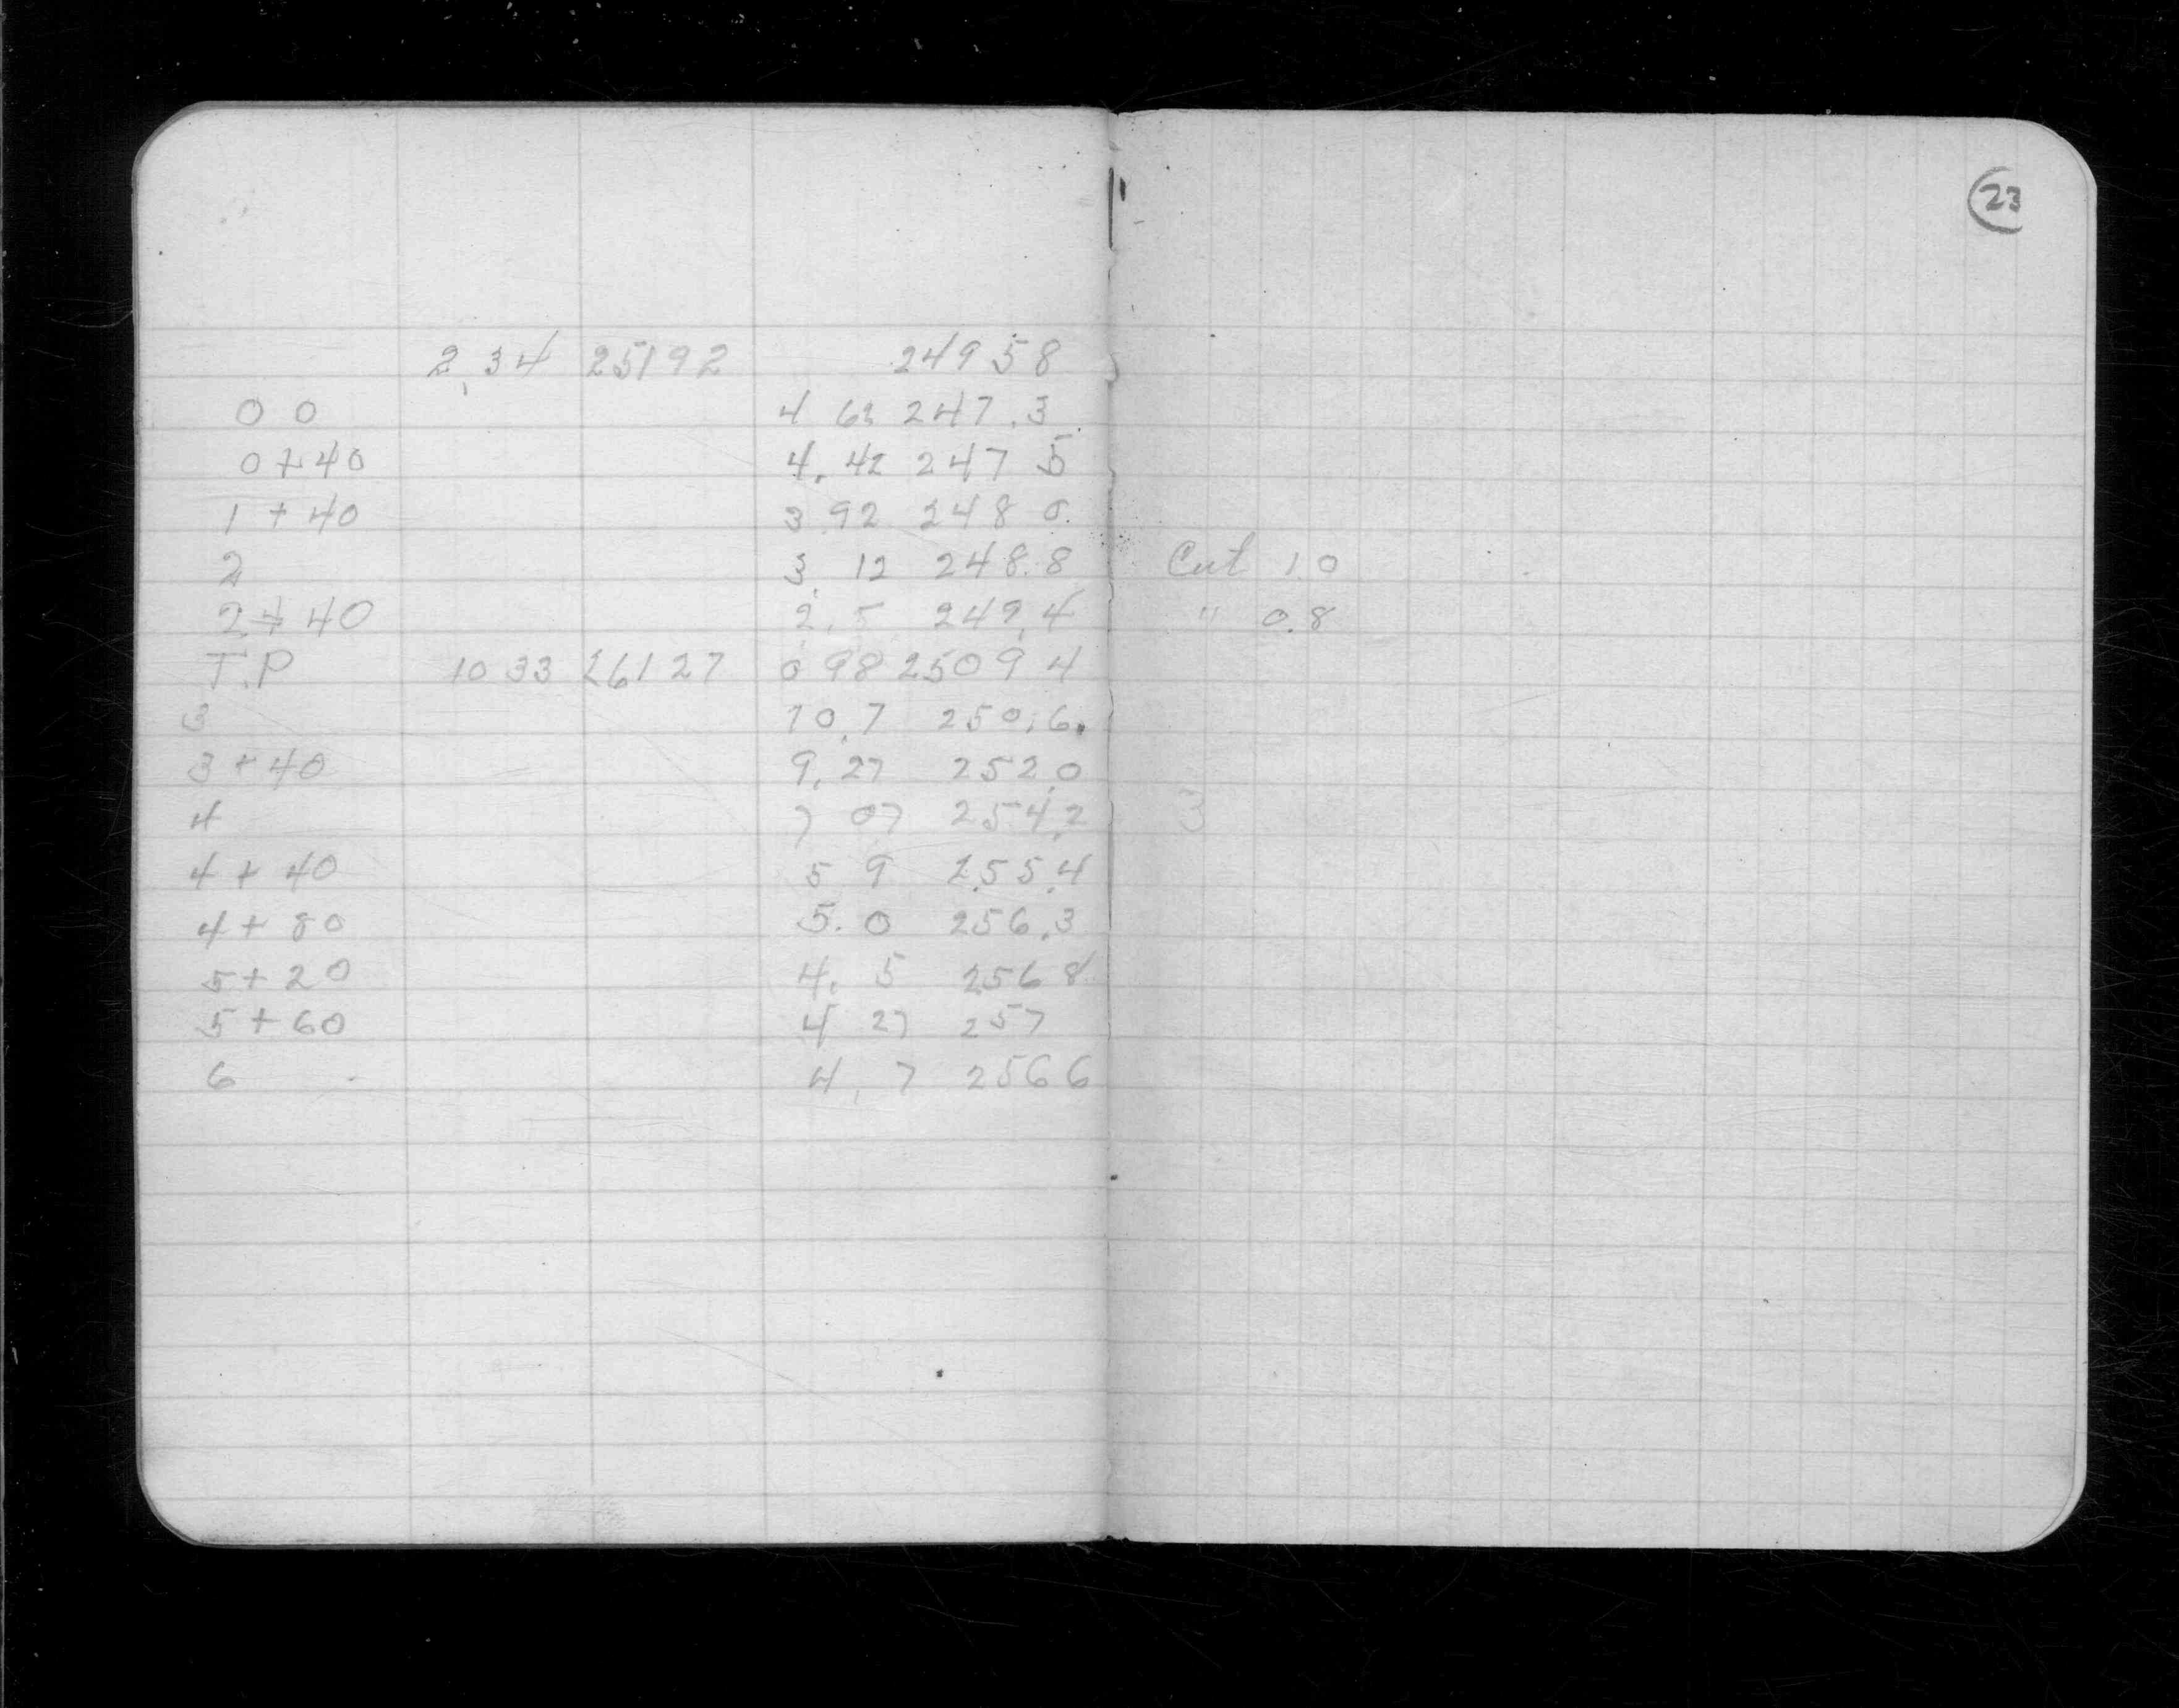 23
2.34 25192 24958
0 0 4 62 247.3
0+40 4.42 247 5
1+40 3 92 248 0.
2 3. 12 248.8 Cut 10
2+40 2.5 249.4 " 0.8
T.P 10 33 26127 0 98 2509 4
3 10.7 250.6.
3+40 9.27 252.0
4 7 07 254.2
4+40 5 9 255.4
4+80 5.0 256.3
5+20 4.5 256 8
5+60 4 27 257
6 4.7 2566